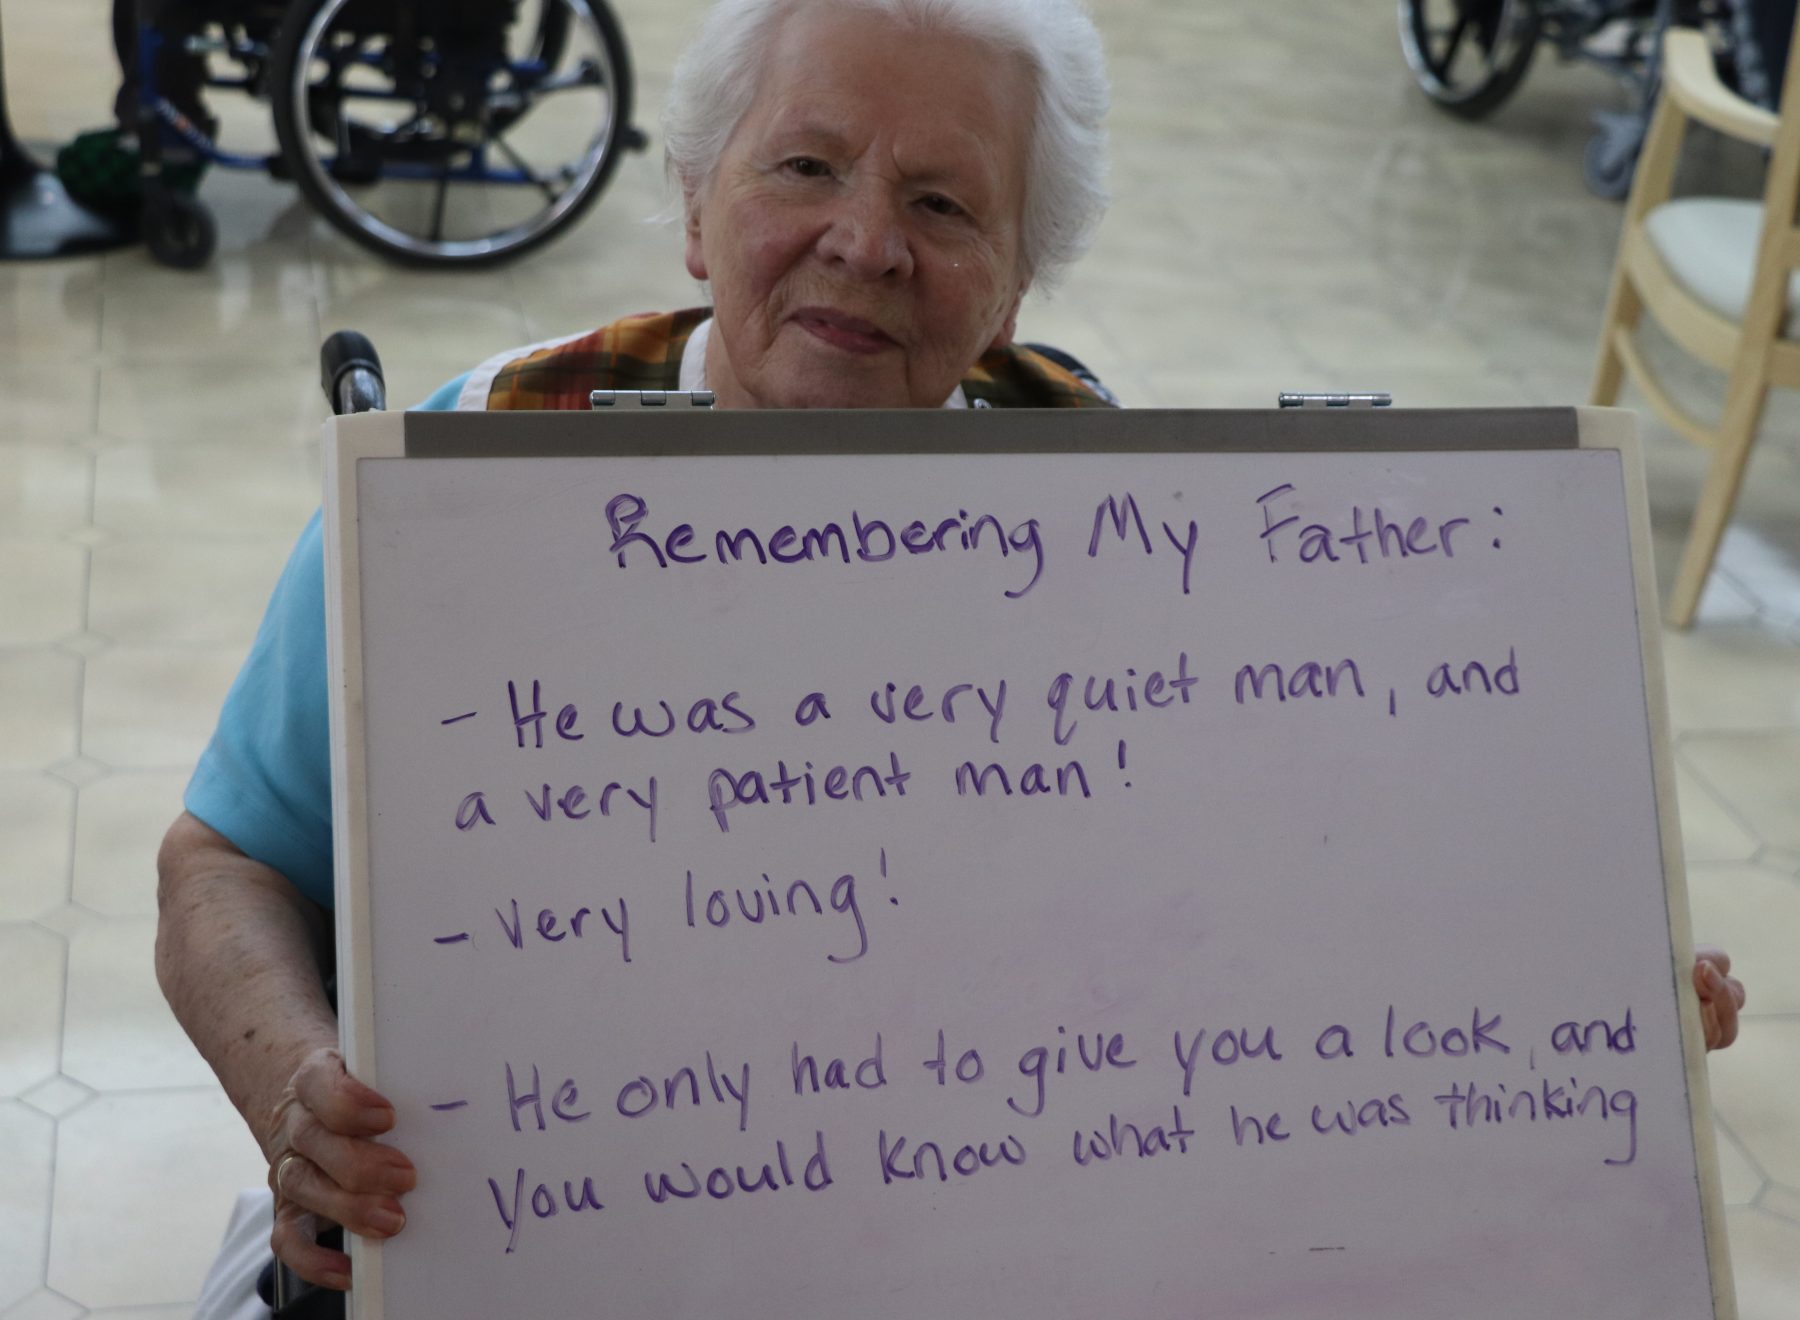 Remembering My Father:
- He was a very quiet man, and
a very patient man!
- Very loving!
- He only had to give you a look, and
You would know what he was thinking